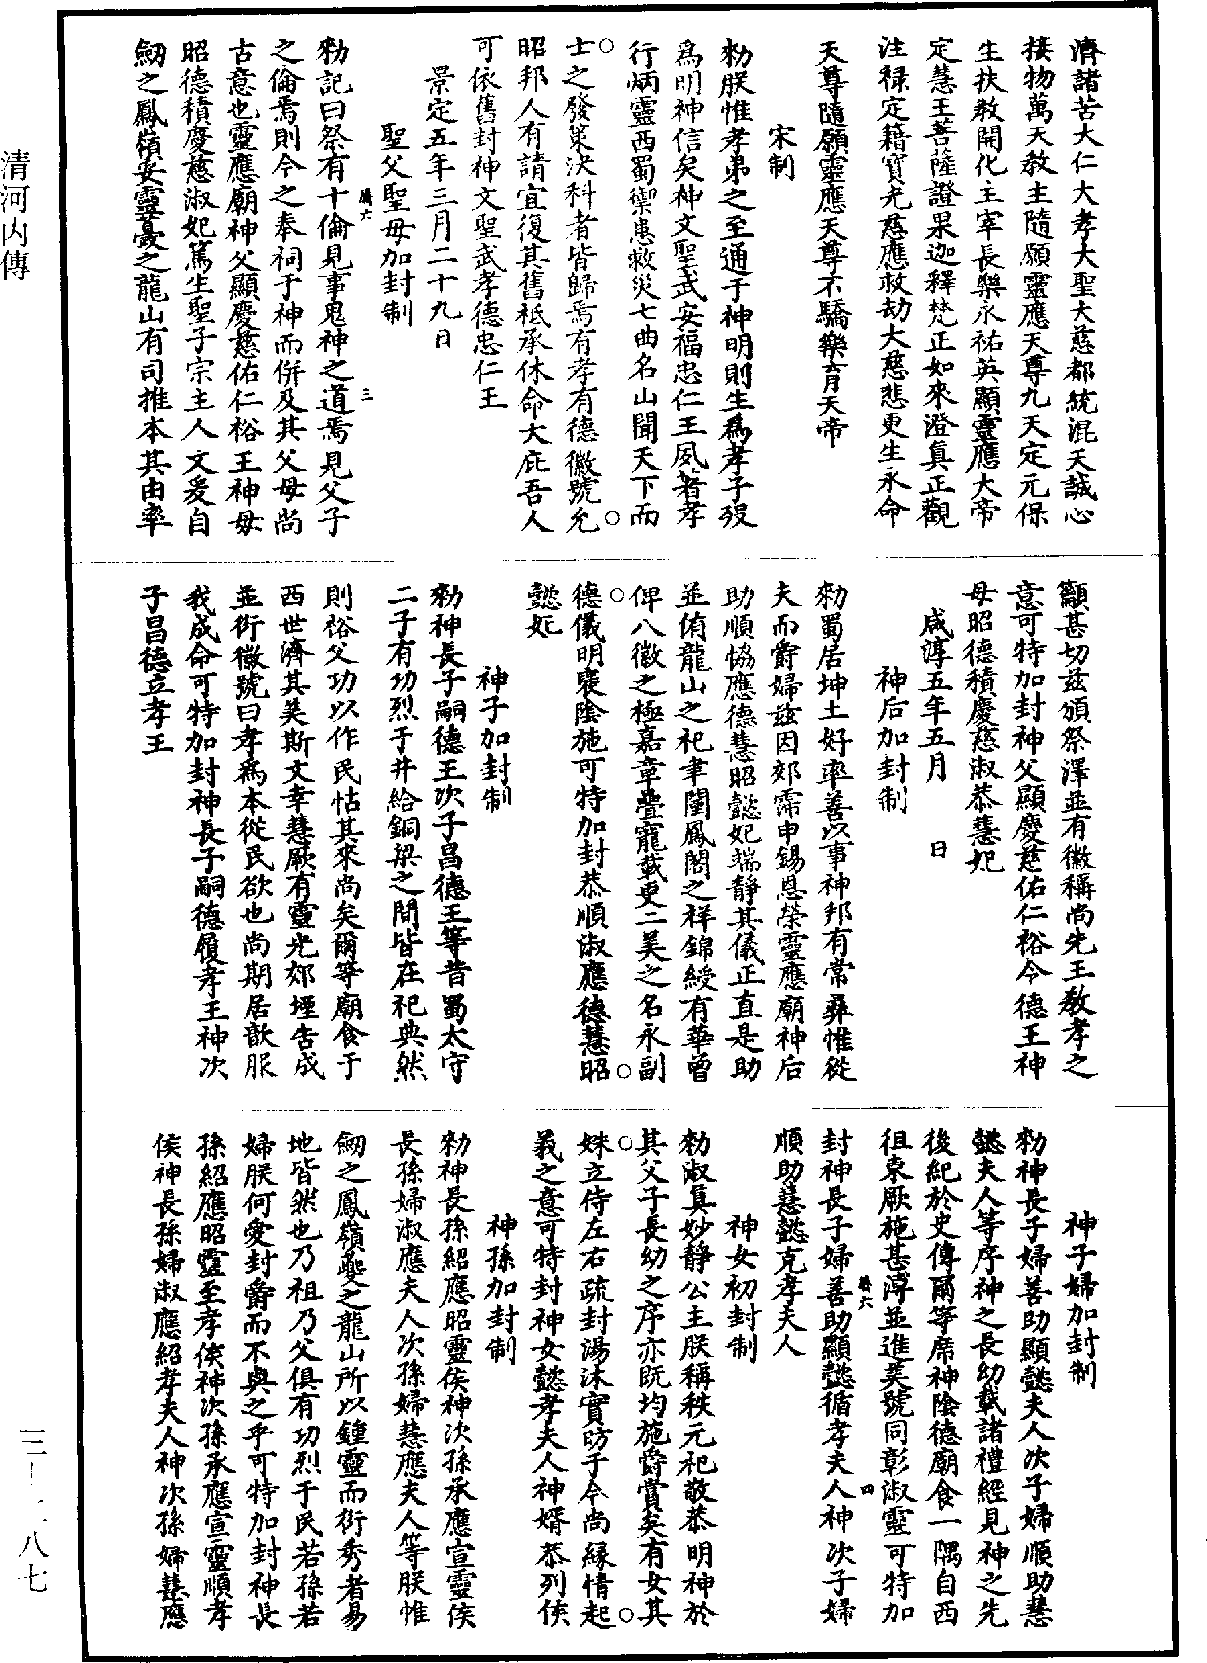 濟諸苦大仁大孝大聖大慈都統混天誠心
接物萬天教主隨願靈應天尊九天定元保
生扶教開化主宰長樂永祐英顯靈應大帝
定慧王菩薩證果迦釋梵正如來澄真正觀
注祿定籍寶光慈應救劫大慈悲更生永命
天尊隨願靈應天尊不驕樂育天帝
宋制
勑朕惟孝弟之至通于神明則生爲孝子歿
爲明神信矣神文聖武安福忠仁王夙著孝
行炳靈西蜀禦患救災七曲名山聞天下而
士之發策決科者皆歸焉有孝有德徽號允
昭邦人有請宜復其舊祇承休命大庇吾人
可依舊封神文聖武孝德忠仁王
景定五年三月二十九日
聖父聖母加封制
勑記曰祭有十倫見事鬼神之道焉見父子
之倫焉則今之奉祠于神而併及其父母尚
古意也靈應廟神父顯慶慈佑仁裕王神母
昭德積慶慈淑妃篤生聖子宗主人文爰自
劒之鳳嶺妥靈夔之龍山有司推本其由率
籲甚切茲頒祭澤並有徽稱尚先王敎孝之
意可特加封神父顯慶慈佑仁裕令德王神
母昭德積慶慈淑恭慧妃
咸淳五年五月　日
神后加封制
勑蜀居坤土好率善以事神邦有常彝惟從
夫而爵婦茲因郊霈申錫恩榮靈應廟神后
助順協應德慧昭懿妃端靜其儀正直是助
並侑龍山之祀聿闡鳳閣之祥錦綬有華曾
俾八徵之極嘉章疊寵載更二美之名永副
德儀明褒陰施可特加封恭順淑應德慧昭
懿妃
神子加封制
勑神長子嗣德王次子昌德王等昔蜀太守
二子有功烈于井給銅梁之間皆在祀典然
則裕父功以作民怙其來尚矣爾等廟食于
西世濟其美斯文幸慧厥有靈光郊堙告成
並衍徽號曰孝爲本從民欲也尚期居歆服
我成命可特加封神長子嗣德履孝王神次
子昌德立孝王
神子婦加封制
勑神長子婦善助顯懿夫人次子婦順助慧
懿夫人等序神之長幼載諸禮經見神之先
後紀於史傳爾等席神陰德廟食一隅自西
徂東厥施甚溥並進美號同彰淑靈可特加
封神長子婦善助顯懿循孝夫人神次子婦
順助慧懿克孝夫人
神女初封制
勑淑真妙靜公主朕稱秩元祀敬恭明神於
其父子長幼之序亦既均施爵賞矣有女其
姝立侍左右疏封湯沐實昉于今尚緣情起
義之意可特封神女懿孝夫人神婿恭列侯
神孫加封制
勑神長孫紹應昭靈侯神次孫承應宣靈侯
長孫婦淑應夫人次孫婦慧應夫人等朕惟
劒之鳳嶺夔之龍山所以鍾靈而衍秀者易
地皆然也乃祖乃父俱有功烈于民若孫若
婦朕何愛封爵而不與之乎可特加封神長
孫紹應昭靈至孝侯神次孫承應宣靈順孝
侯神長孫婦淑應紹孝夫人神次孫婦慧應
清河內傳
八七